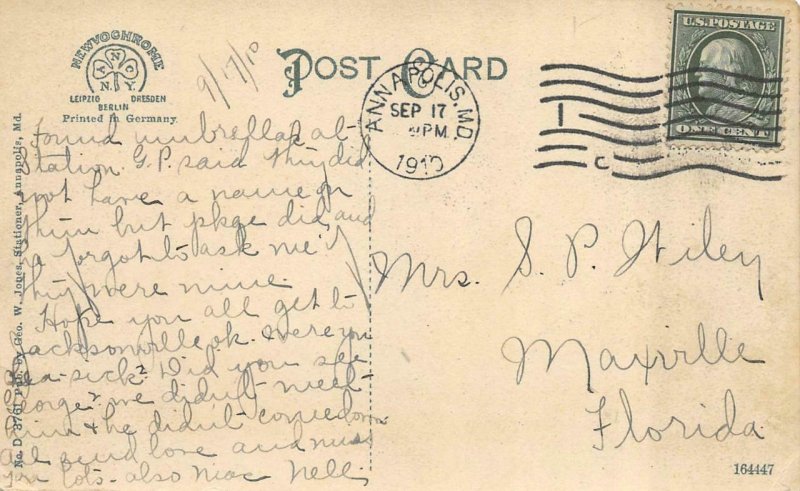 NEWVOCHROME
A N C
N.Y.
LEIPZIG DRESDEN
BERLIN
Printed in Germany.
9/17/10
POST CARD
ANNAPOLIS, MD.
SEP 17
PM
1910
U.S. POSTAGE
ONE CENT
No. D 3761 Pub. by Geo. W. Jones, Stationer, Annapolis, Md.
Found umbrellas at
Station G.P. said they did
not have a name on
them but pkge did, and
he forgot to ask me if
they were mine
Hope you all got to
Jacksonville ok. were you
sea-sick? Did you see
George? we didn't meet
him & he didn't come down
All send love and miss
you lots - also Mac Nell
Mrs. S. P. Wiley
Maxville
Florida.
164447